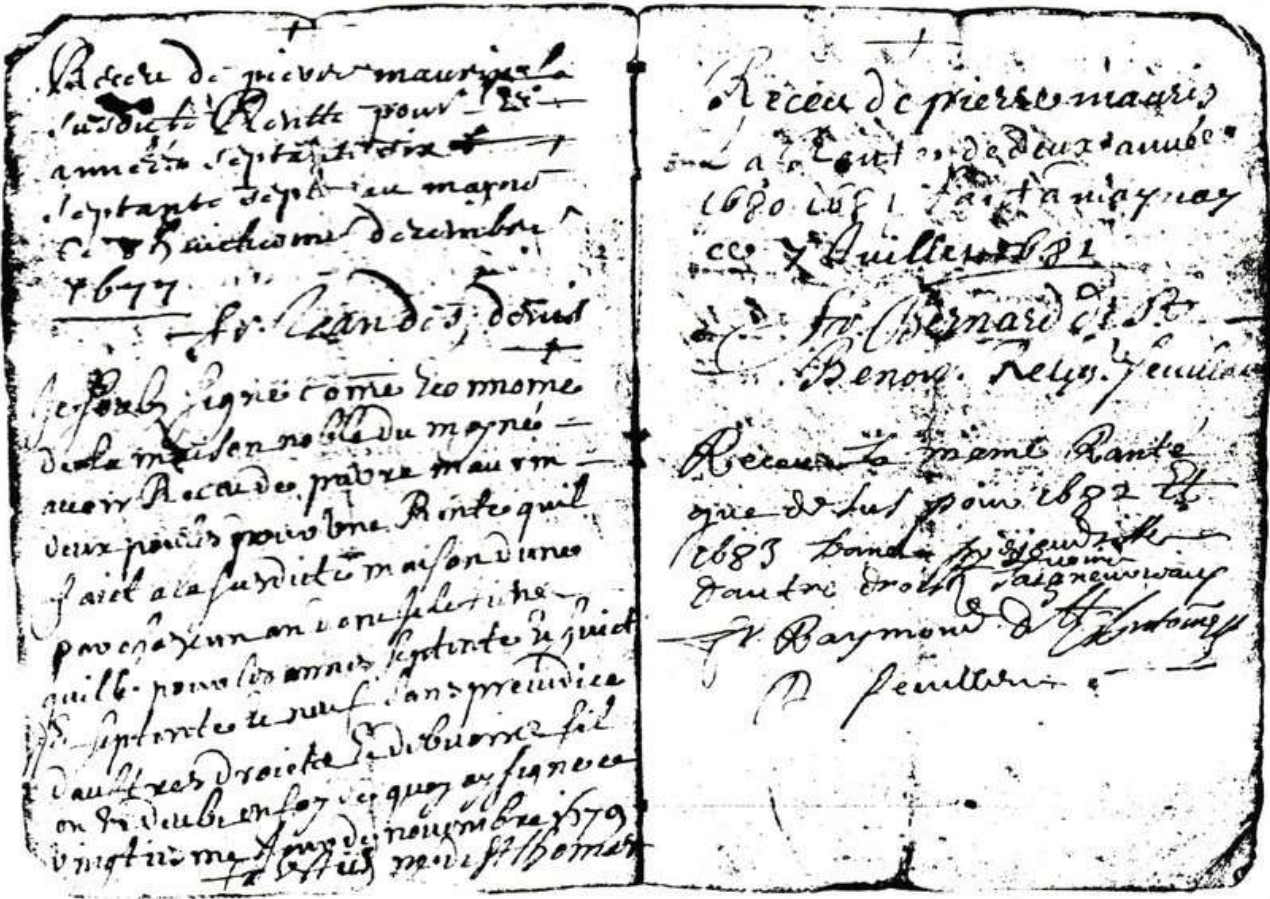 Receu de pierre maurin la
susdicte Rentte pour les
annees septante six et
septante sept au magné
ce huictiesme decembre
1677
fr. Jean de St denis
Je soubz signé comme econnome
de la maison noble du magné
avoir Receu de pierre maurin
deux pour une Rente quil
faict a la susdicte maison dune
par chaxun an donc je le tiens
quitte pour les annees septente et huict
et septente et neuf sans preiudice
daultres droicts et debvoirs sil
en est deub en foy de quoy ay signé ce
vingtiesme jour de novembre 1679
de St thomas
Receu de pierre mauris
La Rente de deux année
1680 1681 fait a magnay
ce 7 Juillet 1682
fr. Bernard de St
Benoist. Relig. feuillan
Receu la meme Rante
que desus pour 1682 Et
1683 sans preiudice
dautre droit seigneuriaux
fr Raymond de St Antoine
feuillien